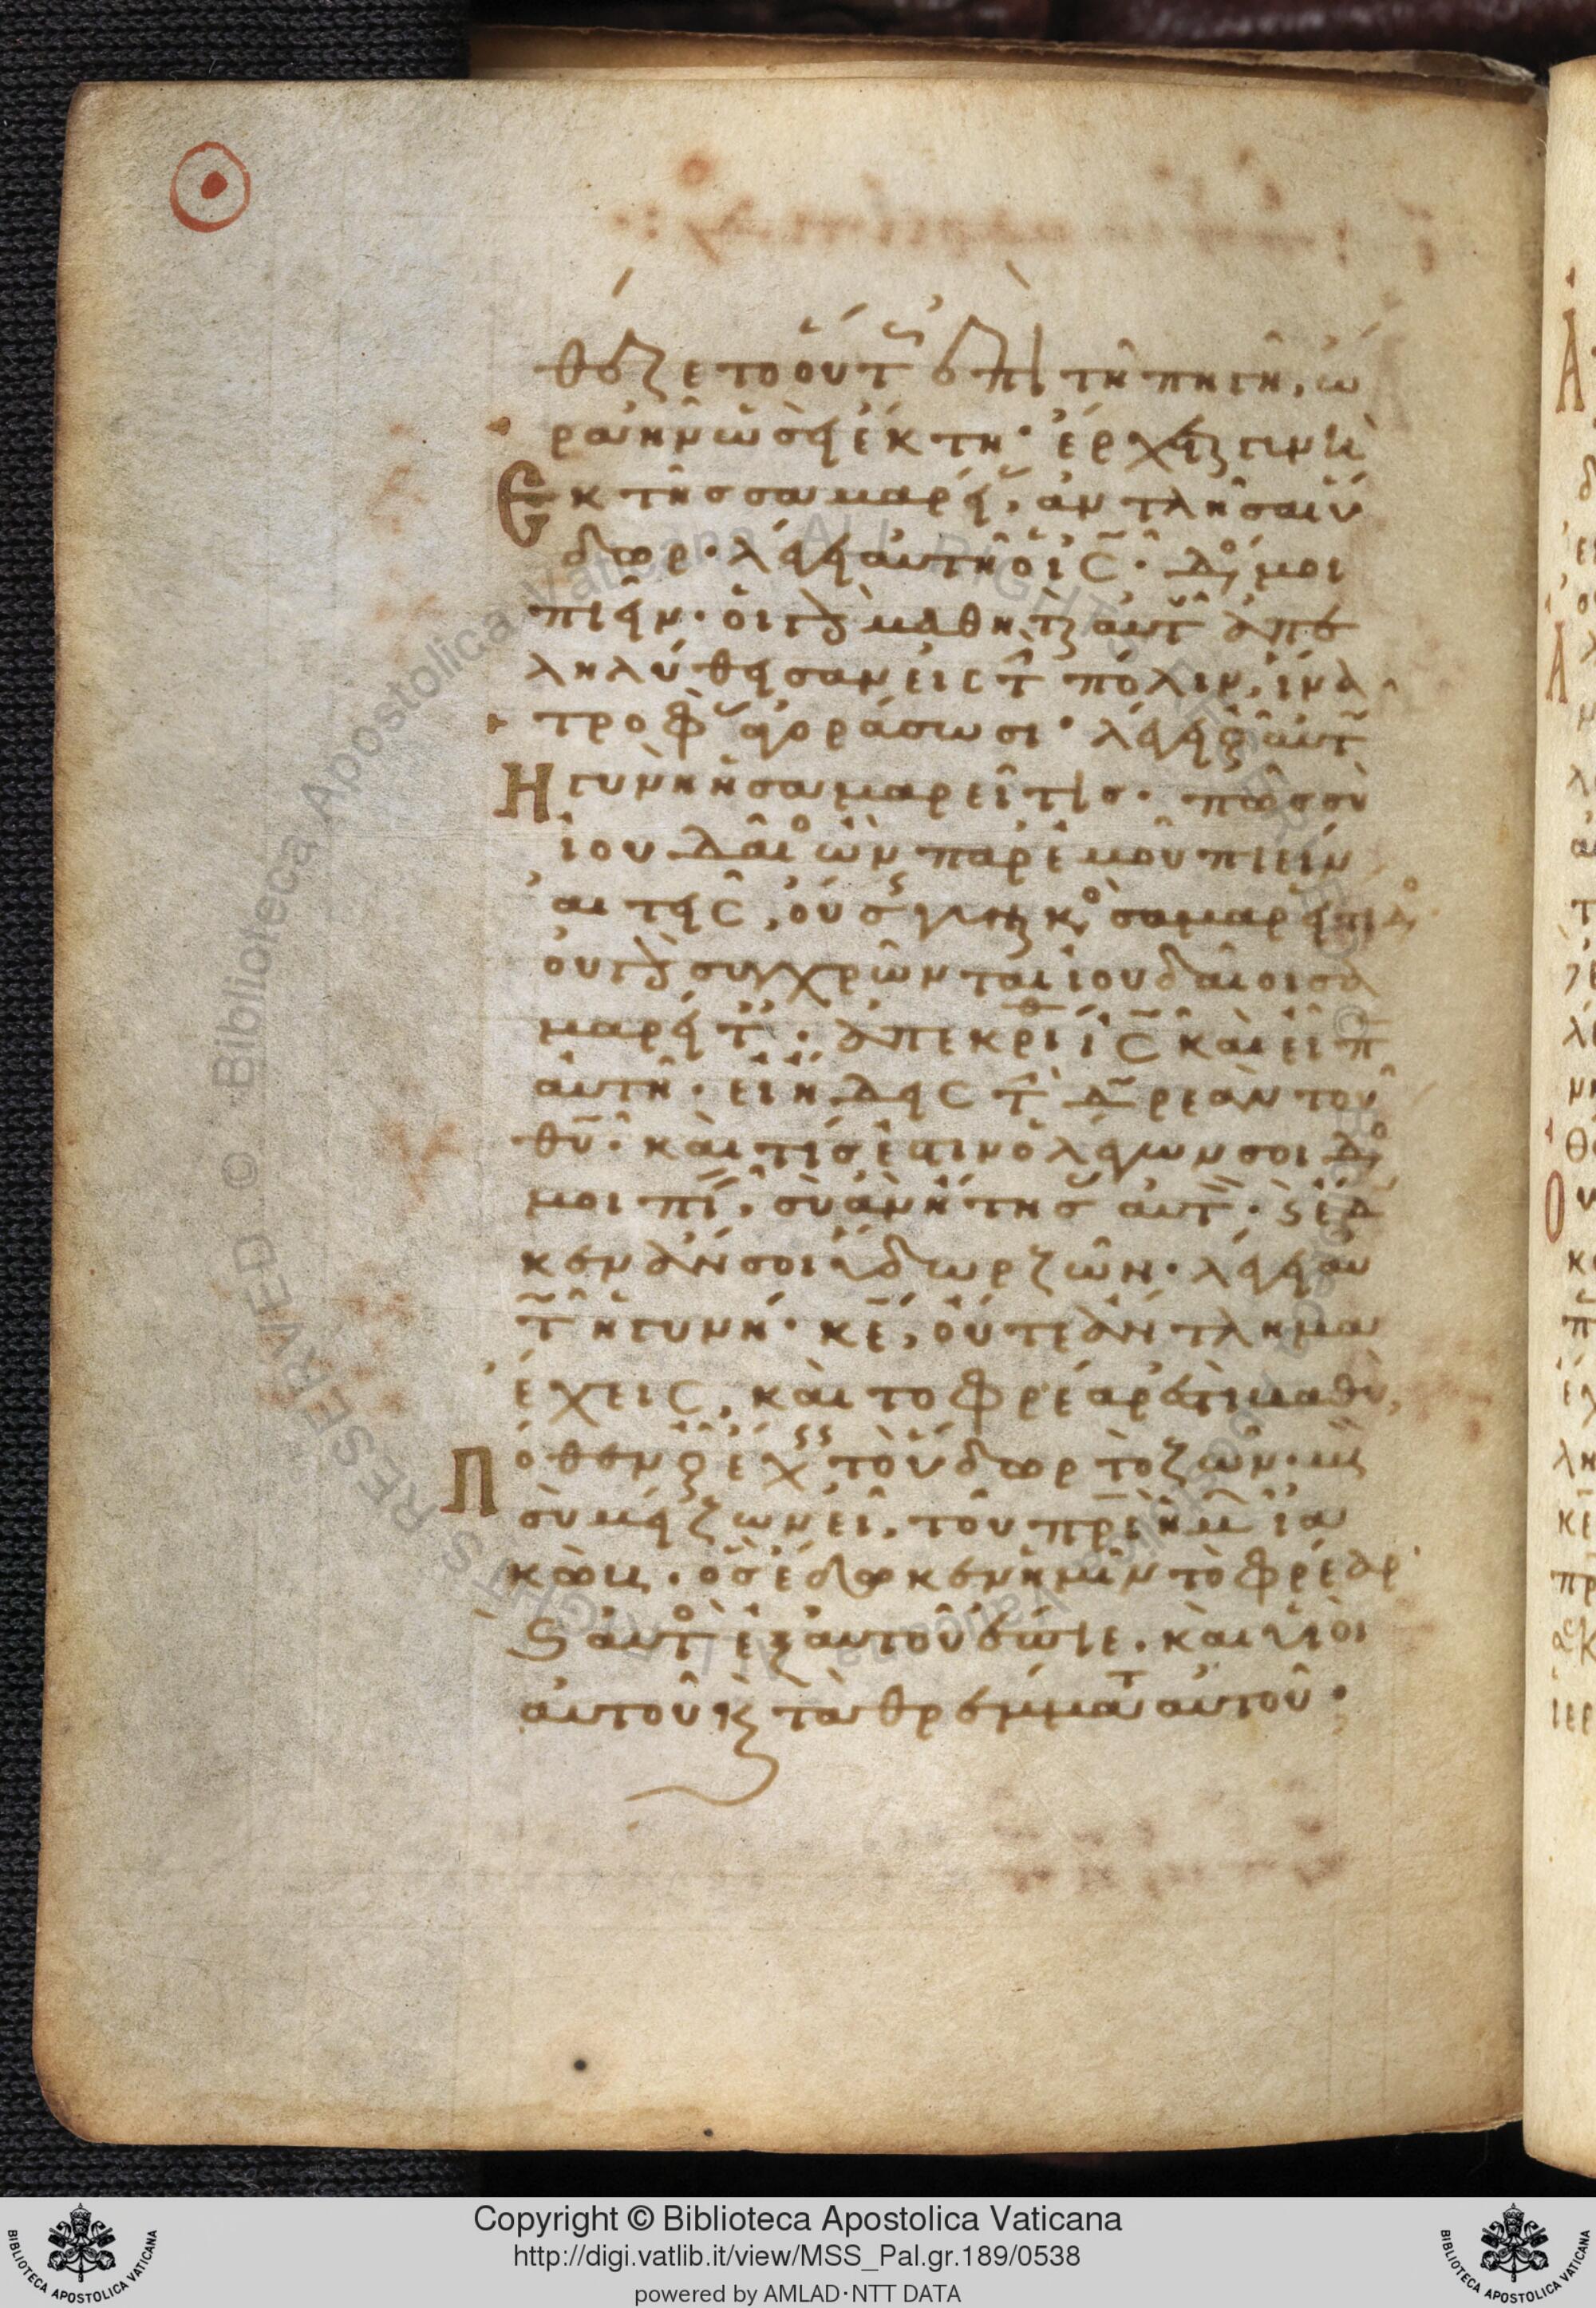 θέζετο οὕτ ἐπὶ τῆ πηγῆ, ὡ
ρα ἦν ὡσεὶ ἕκτη· ἔρχεται γυνὴ
Ἐκ τῆς σαμαρεί, ἀντλῆσαι ὕ
δωρ· λέγει αὐτῆ ὁ ισ· δός μοι
πιεῖν· οἱ γὰρ μαθηταὶ αὐτ ἀπε
ληλύθεισαν εἰς τ πόλιν, ἵνα
τροφὰς ἀγοράσωσι· λέγει οὖν αὐτ
Ἡ γυνὴ ἡ σαμαρεῖτις· πῶς σὺ
ἰουδαῖος ὢν παρ' ἐμοῦ πιεῖν
αἰτεῖς, οὔσ γυναικὸς σαμαρείτιδο
οὐ γὰρ συγχρῶνται ἰουδαῖοι σα
μαρείτ· ἀπεκρίθ ισ καὶ εἶπ
αὐτῆ· εἰ ἤδεις τ δωρεὰν τοῦ
θυ· καὶ τίς ἐστιν ὁ λέγων σοι δός
μοι πι, σὺ ἂν ἤτησ αὐτ· καὶ ἔδω
κεν ἄν σοι ὕδωρ ζῶν· λέγει αὐ
τ ἡ γυνή· κε, οὔτε ἄντλημα
ἔχεις, καὶ τὸ φρέαρ ἐστὶ βαθύ,
Πόθεν οὖν ἔχεις τὸ ὕδωρ τὸ ζῶν· μὴ
σὺ μείζων εἶ, τοῦ πρς ἡμ ἰα
κώβ· ὃς ἔδωκεν ἡμῖν τὸ φρέαρ
καὶ αὐτὸς ἐξ αὐτοῦ ἔπιε· καὶ οἱ υἱοὶ
αὐτοῦ καὶ τὰ θρέμματ αὐτοῦ·
Copyright © Biblioteca Apostolica Vaticana
http://digi.vatlib.it/view/MSS_Pal.gr.189/0538
powered by AMLAD·NTT DATA